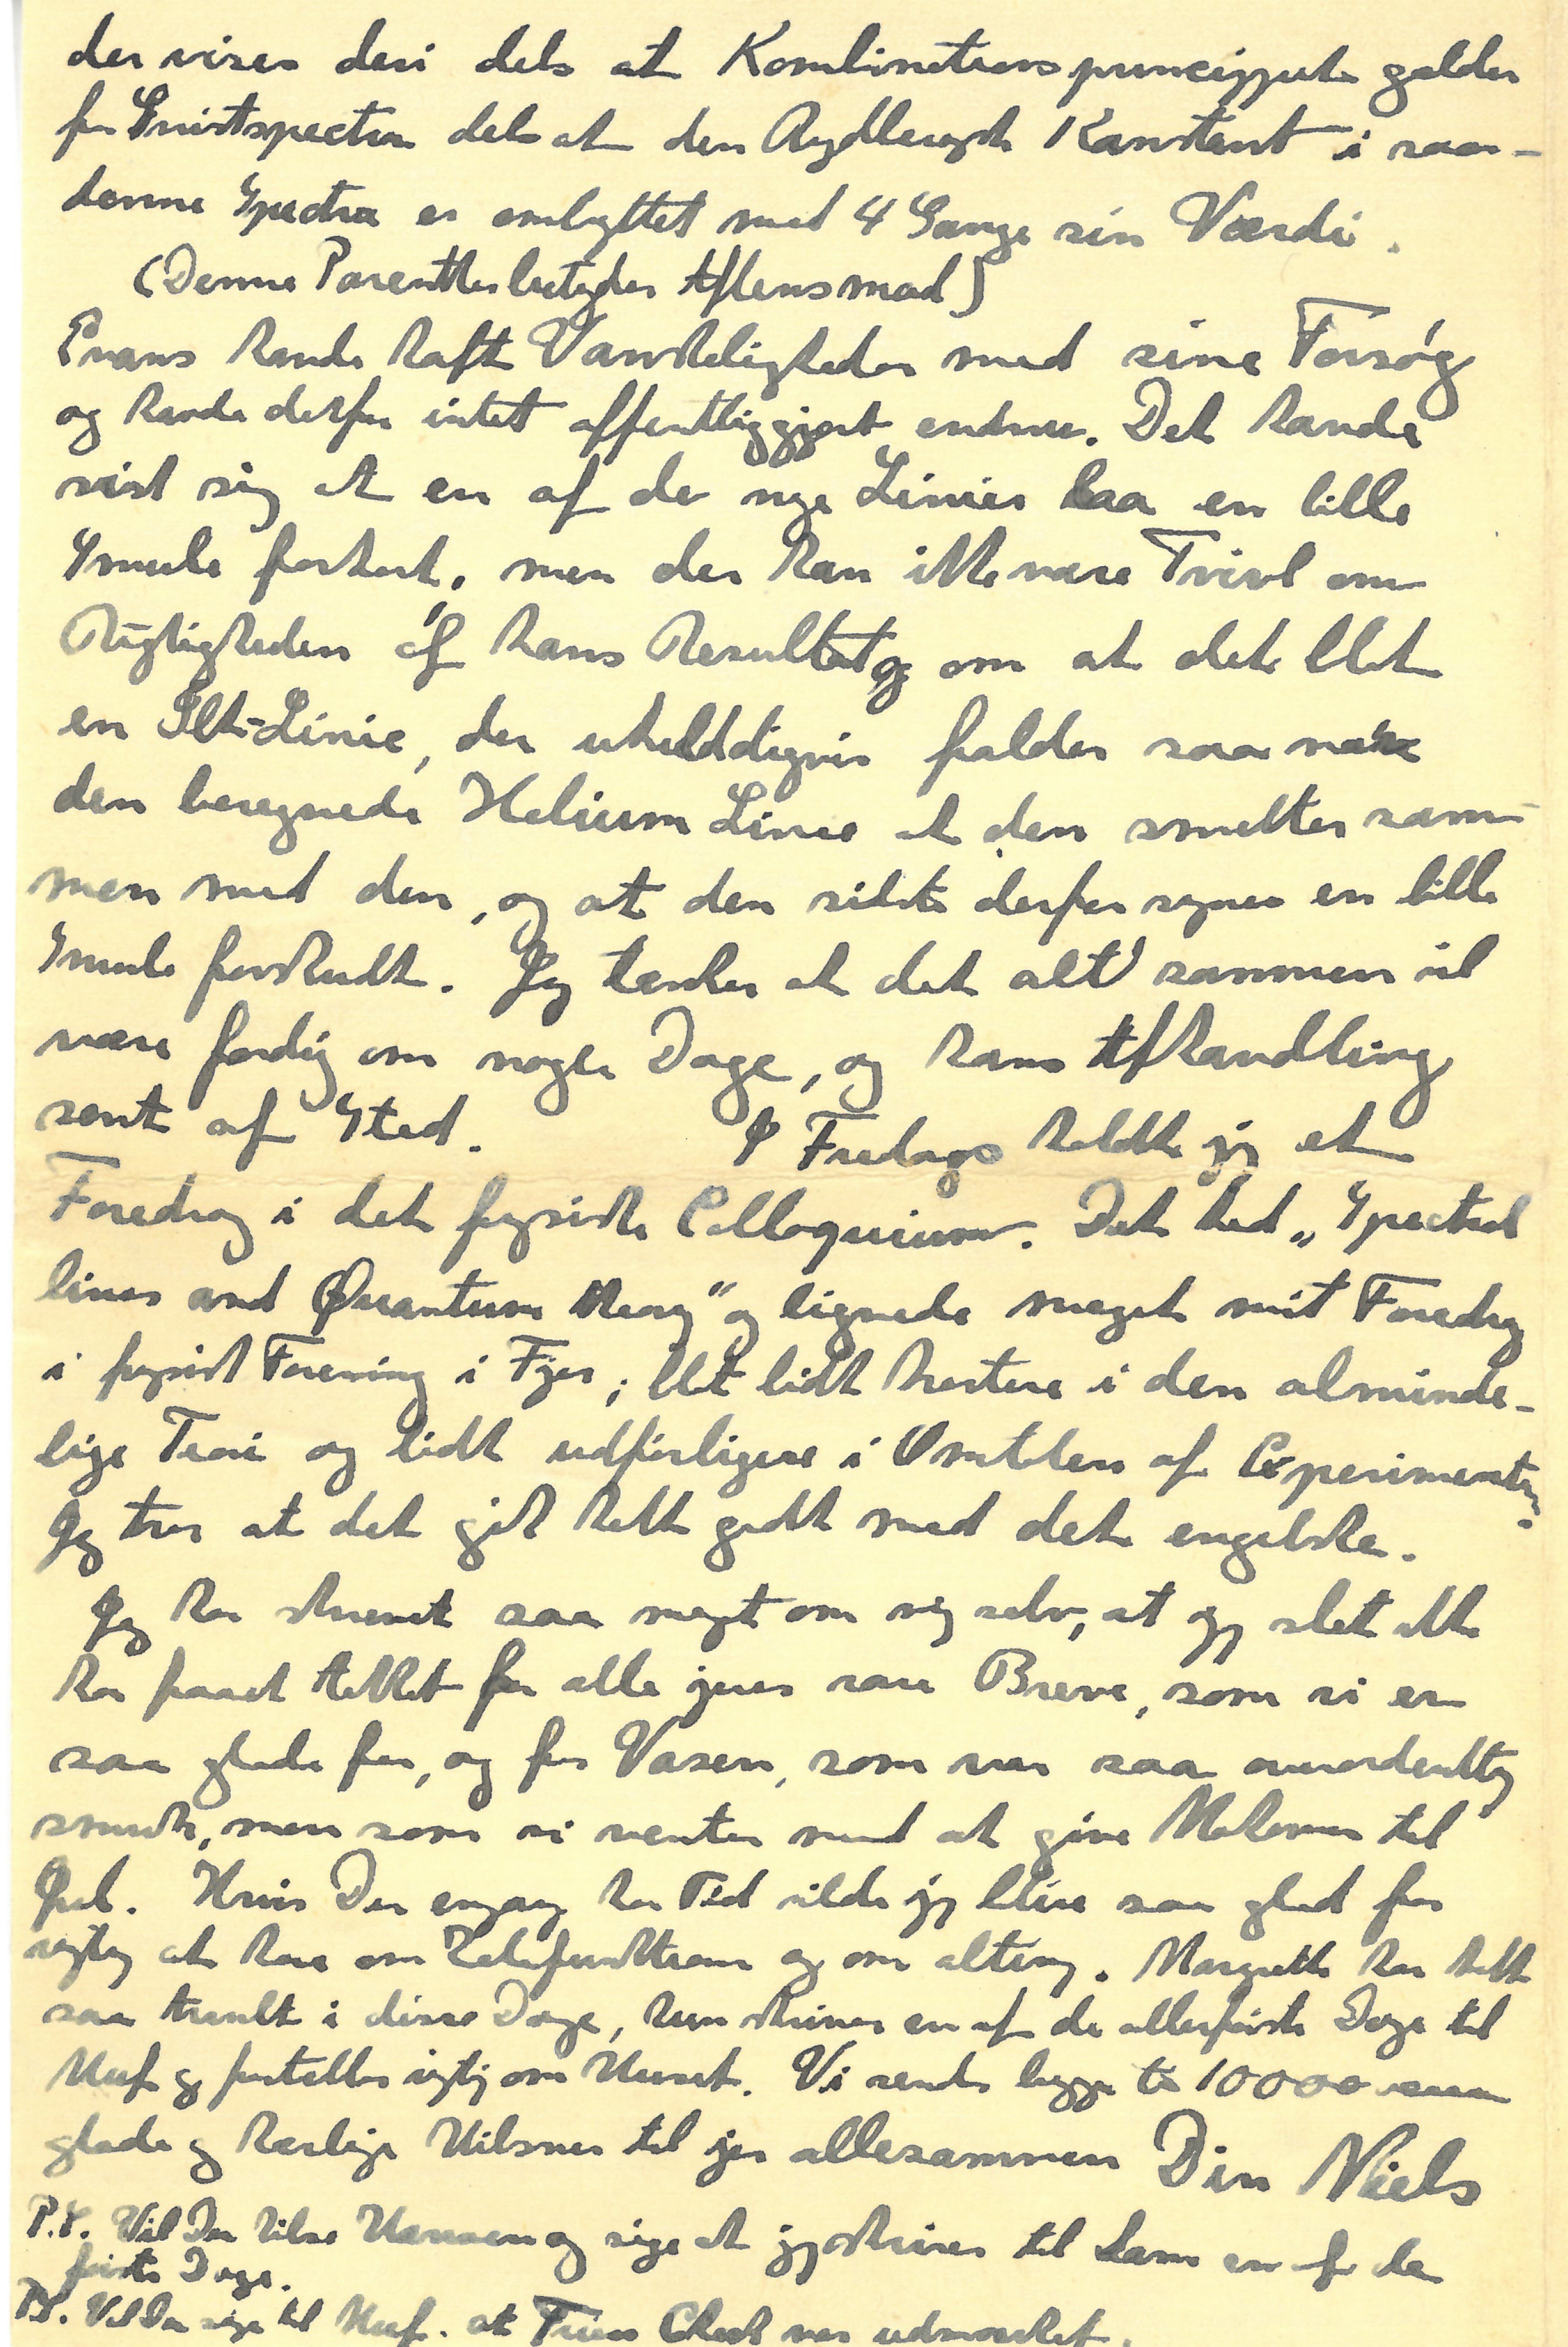 der vises deri dels at Kombinationsprincippet gælder
for Gnistspectra dels at den Rydbergske Konstant i saa-
danne Spectra er ombyttet med 4 Gange sin Værdi.
(Denne Parenthes betyder Aftensmad)
Evans havde haft Vanskeligheder med sine Forsøg
og havde derfor intet offentliggjort endnu. Det havde
vist sig at en af de nye Linier laa en lille
Smule forkert, men der kan ikke være Tvivl om
Rigtigheden af hans Resultat og om at det blot
en Ilt-Linie, der uheldigvis falder saa nær
den beregnede Helium Linie at den smelter sam-
men med den, og at den sidste derfor synes en lille
Smule forskudt. Jeg tænker at det alt sammen vil
være færdig om nogle Dage, og hans Afhandling
sent af Sted. I Fredags holdt jeg et
Foredrag i det fysiske Colloquium. Det hed „Spectral
lines and Quantum theory" og lignede meget mit Foredrag
i fysisk Forening i Fjor; blot lidt kortere i den alminde-
lige Teori og lidt udførligere i Omtalen af Experimenter.
Jeg tror at det gik helt godt med det engelske.
Jeg har skrevet saa meget om mig selv, at jeg slet ikke
har faaet takket for alle jeres rare Breve, som vi er
saa glade for, og for Vasen, som var saa overordentlig
smuk, men som vi venter med at give til
Jul. Hvis Du engang har Tid vilde jeg blive saa glad for
rigtig at høre om og om alting. Margrethe har haft
saa travlt i disse Dage, hun skriver en af de allerførste Dage til
og fortæller rigtig om Huset. Vi sender begge to 10000
glade og kærlige Hilsner til jer allesammen Din Niels
P.S. Vil Du hilse og sige at jeg skriver til ham en af de
første Dage.
PS. Vil Du sige til at var udmærket.